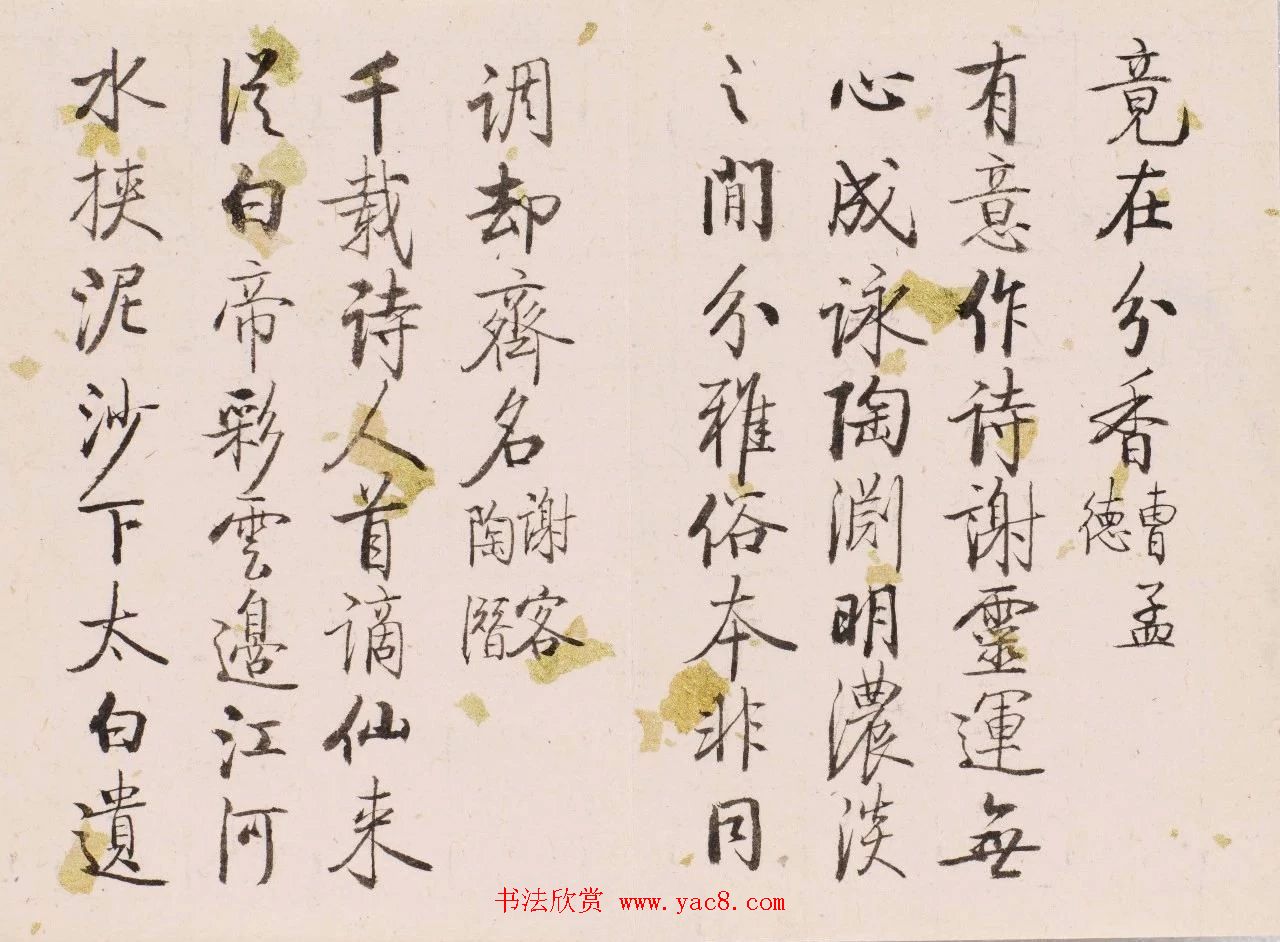 竟在分香曹孟德
有意作诗謝靈運無
心成詠陶淵明濃淡
之間分雅俗本非同
调却齊名謝客陶潛
千载诗人首谪仙来
從白帝彩雲邊江河
水挾泥沙下太白遺
书法欣赏 www.yac8.com